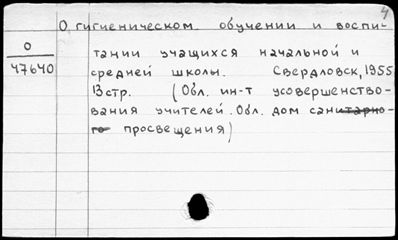 4
О гигиеническом обучении и воспи-
О
47640
тании учащихся начальной и
средней школы. Свердловск, 1955
13 стр. (Обл. ин-т усовершенство-
вания учителей. Обл. дом санитарно-
го просвещения)